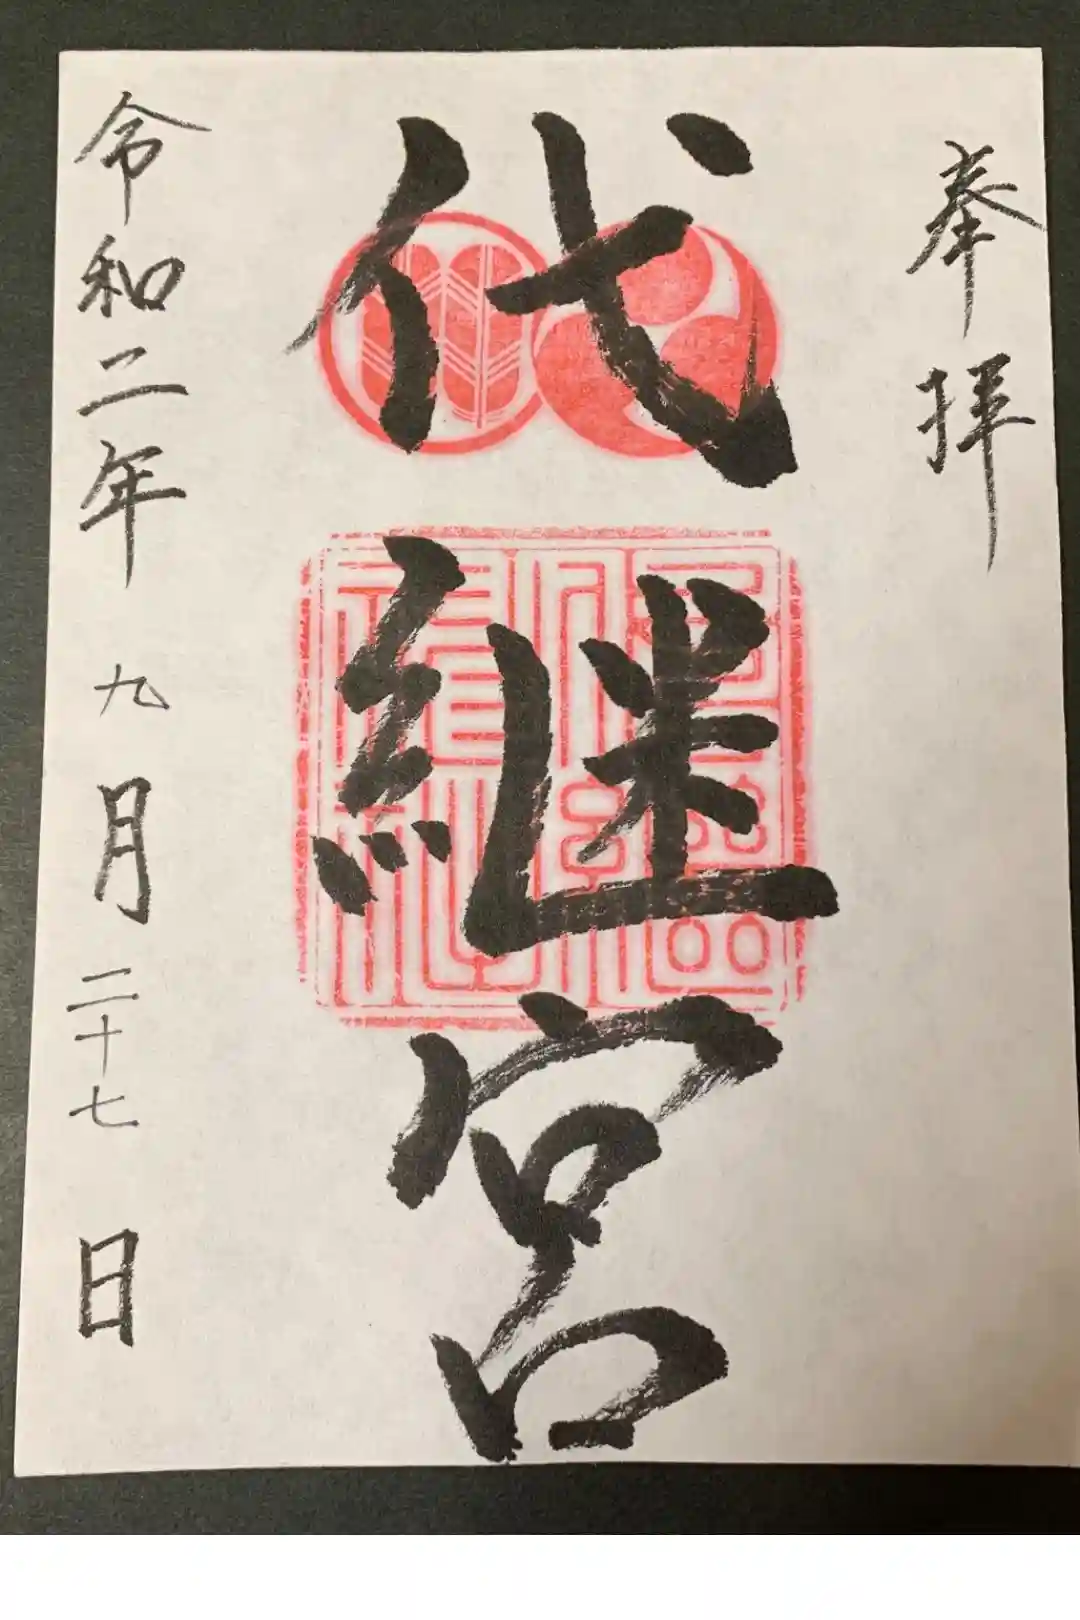 奉拝
代継宮
令和二年 九月 二十七 日